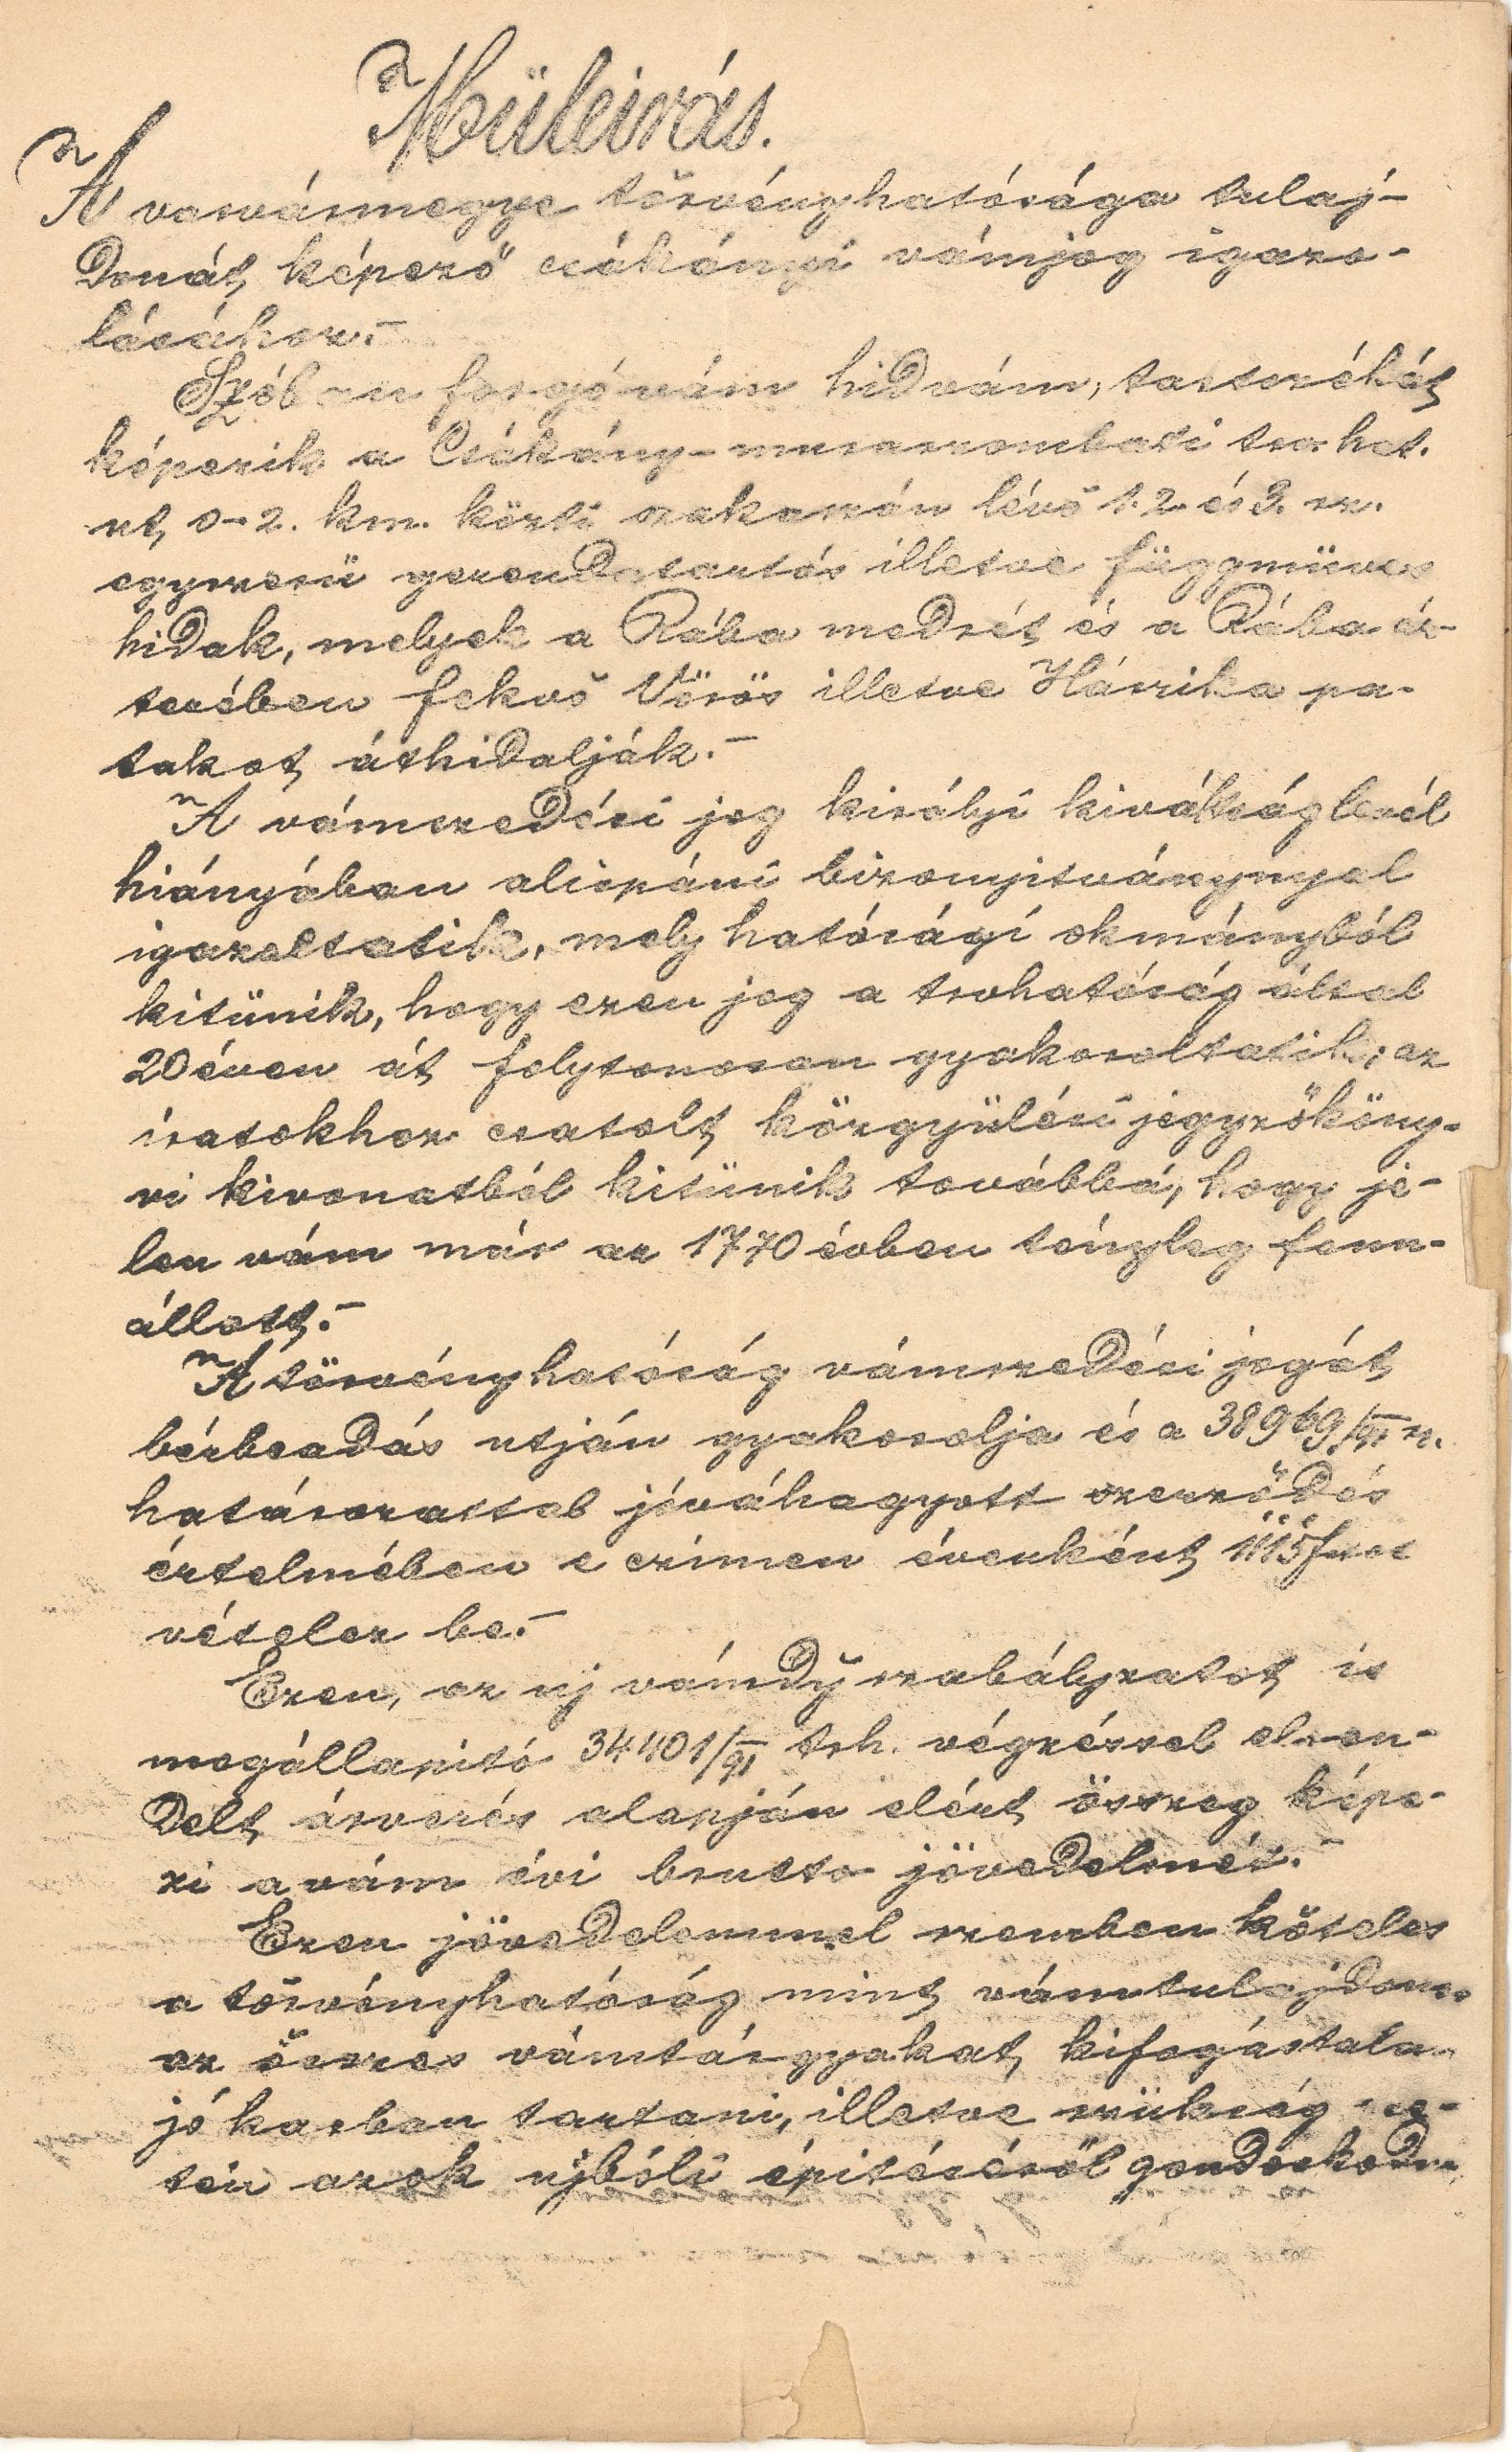 Műleirás.
A vasvármegye törvényhatósága tulaj-
donát képező csákányi vámjog igazo-
lásához.-
Szóban forgó vám hidvám, tartozékát
képezik a Csákány-muraszombati tvhat.
ut 0-2. km. közti szakaszán lévő 1. 2. és 3. sz.
egyszerü gerendatartós illetve függmüves
hidak, melyek a Rába medrét és a Rába ár-
terében fekvő Vörös illetve Hársika pa-
takot áthidalják.-
A vámszedési jog királyi kiváltságlevél
hiányában alispáni bizonyitványnyal
igazoltatik, mely hatósági okmányból
kitünik, hogy ezen jog a tvhatóság által
20 éven át folytonosan gyakoroltatik; az
iratokhoz csatolt közgyülési jegyzőköny-
vi kivonatból kitünik továbbá, hogy je-
len vám már az 1770 évben tényleg fenn-
állott.-
A törvényhatóság vámszedési jogát
bérbeadás utján gyakorolja és a 38969/VI sz.
határozattal jóváhagyott szerződés
értelmében e czimen évenként 1115 frtot
vételez be.-
Ezen, az uj vámdíj szabályzatot is
megállapitó 34401/VI/91 tvh. végzéssel elren-
delt árverés alapján elért összeg képe-
zi a vám évi brutto jövedelmét.-
Ezen jövedelemmel szemben köteles
a törvényhatóság mint vámtulajdonos
az összes vámtárgyakat kifogástalan
jó karban tartani, illetve szükség ese-
tén azok ujbóli épitéséről gondoskodni